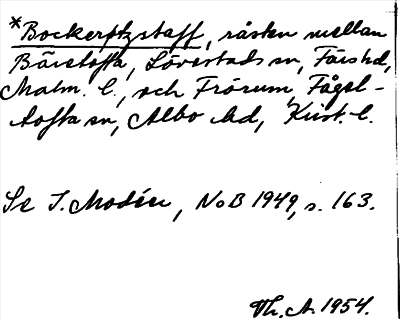 *Bockerptzstaff, råsten mellan
Bäretofta, Lövestads sn, Färs hd,
Malm. l., och Frörum, Fågel-
tofta sn, Albo hd, Krist. l.
Se I. Modéer, NoB 1949, s. 163.
Th. A. 1954.